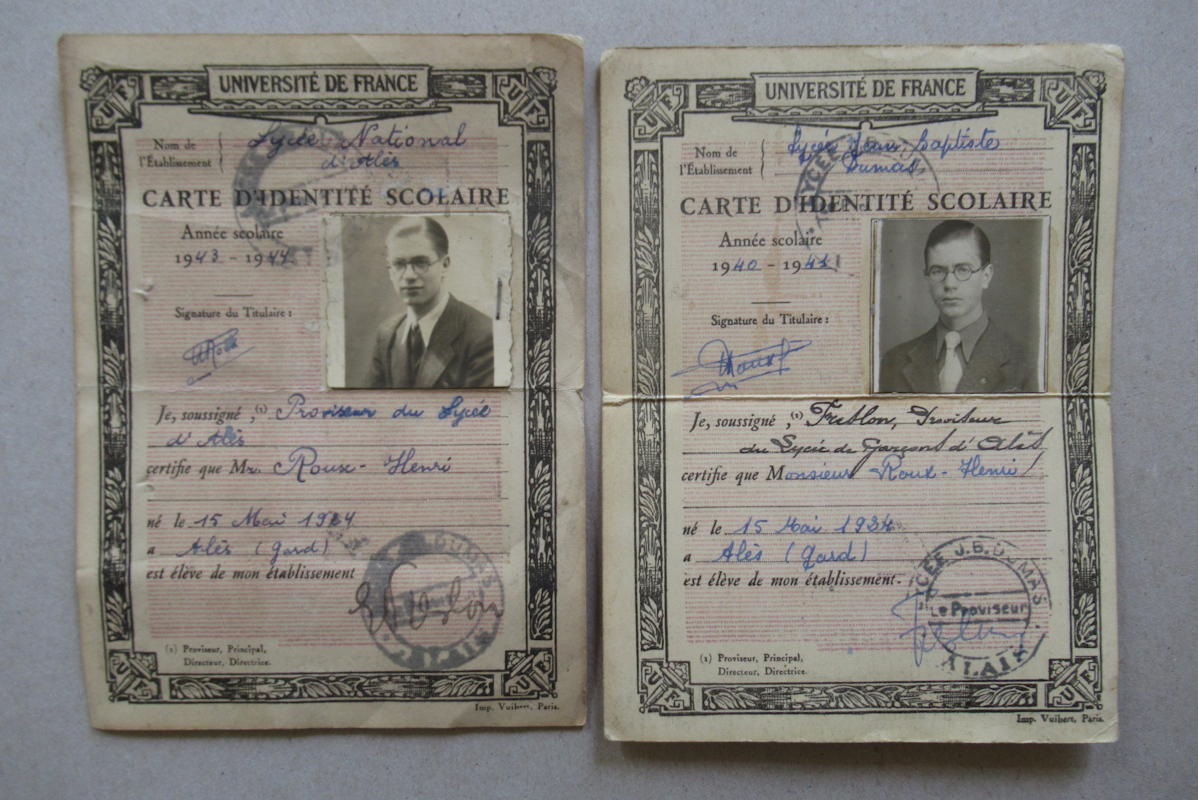 UNIVERSITÉ DE FRANCE
U F
U F
Nom de
l'Établissement
Lycée National
d'Alès
CARTE D'IDENTITÉ SCOLAIRE
Année scolaire
1943 - 1944
Signature du Titulaire :
Je, soussigné ,(1) Proviseur du Lycée
d'Alès
certifie que Mr. Roux - Henri
né le 15 Mai 1924
a Alès (Gard)
est élève de mon établissement
DUMAS
ALAIS
(1) Proviseur, Principal,
Directeur, Directrice.
U F
U F
Imp. Vuibert, Paris.
UNIVERSITÉ DE FRANCE
U F
U F
Nom de
l'Établissement
Lycée Jean Baptiste
Dumas
LYCÉE
CARTE D'IDENTITÉ SCOLAIRE
Année scolaire
1940 - 1941
Signature du Titulaire :
Je, soussigné ,(1) Freslon, Proviseur
du Lycée de Garçons d'Alès
certifie que Monsieur Roux - Henri
né le 15 Mai 1924
a Alès (Gard)
est élève de mon établissement.
LYCÉE J.B. DUMAS
Le Proviseur
ALAIS
(1) Proviseur, Principal,
Directeur, Directrice.
U F
U F
Imp. Vuibert, Paris.